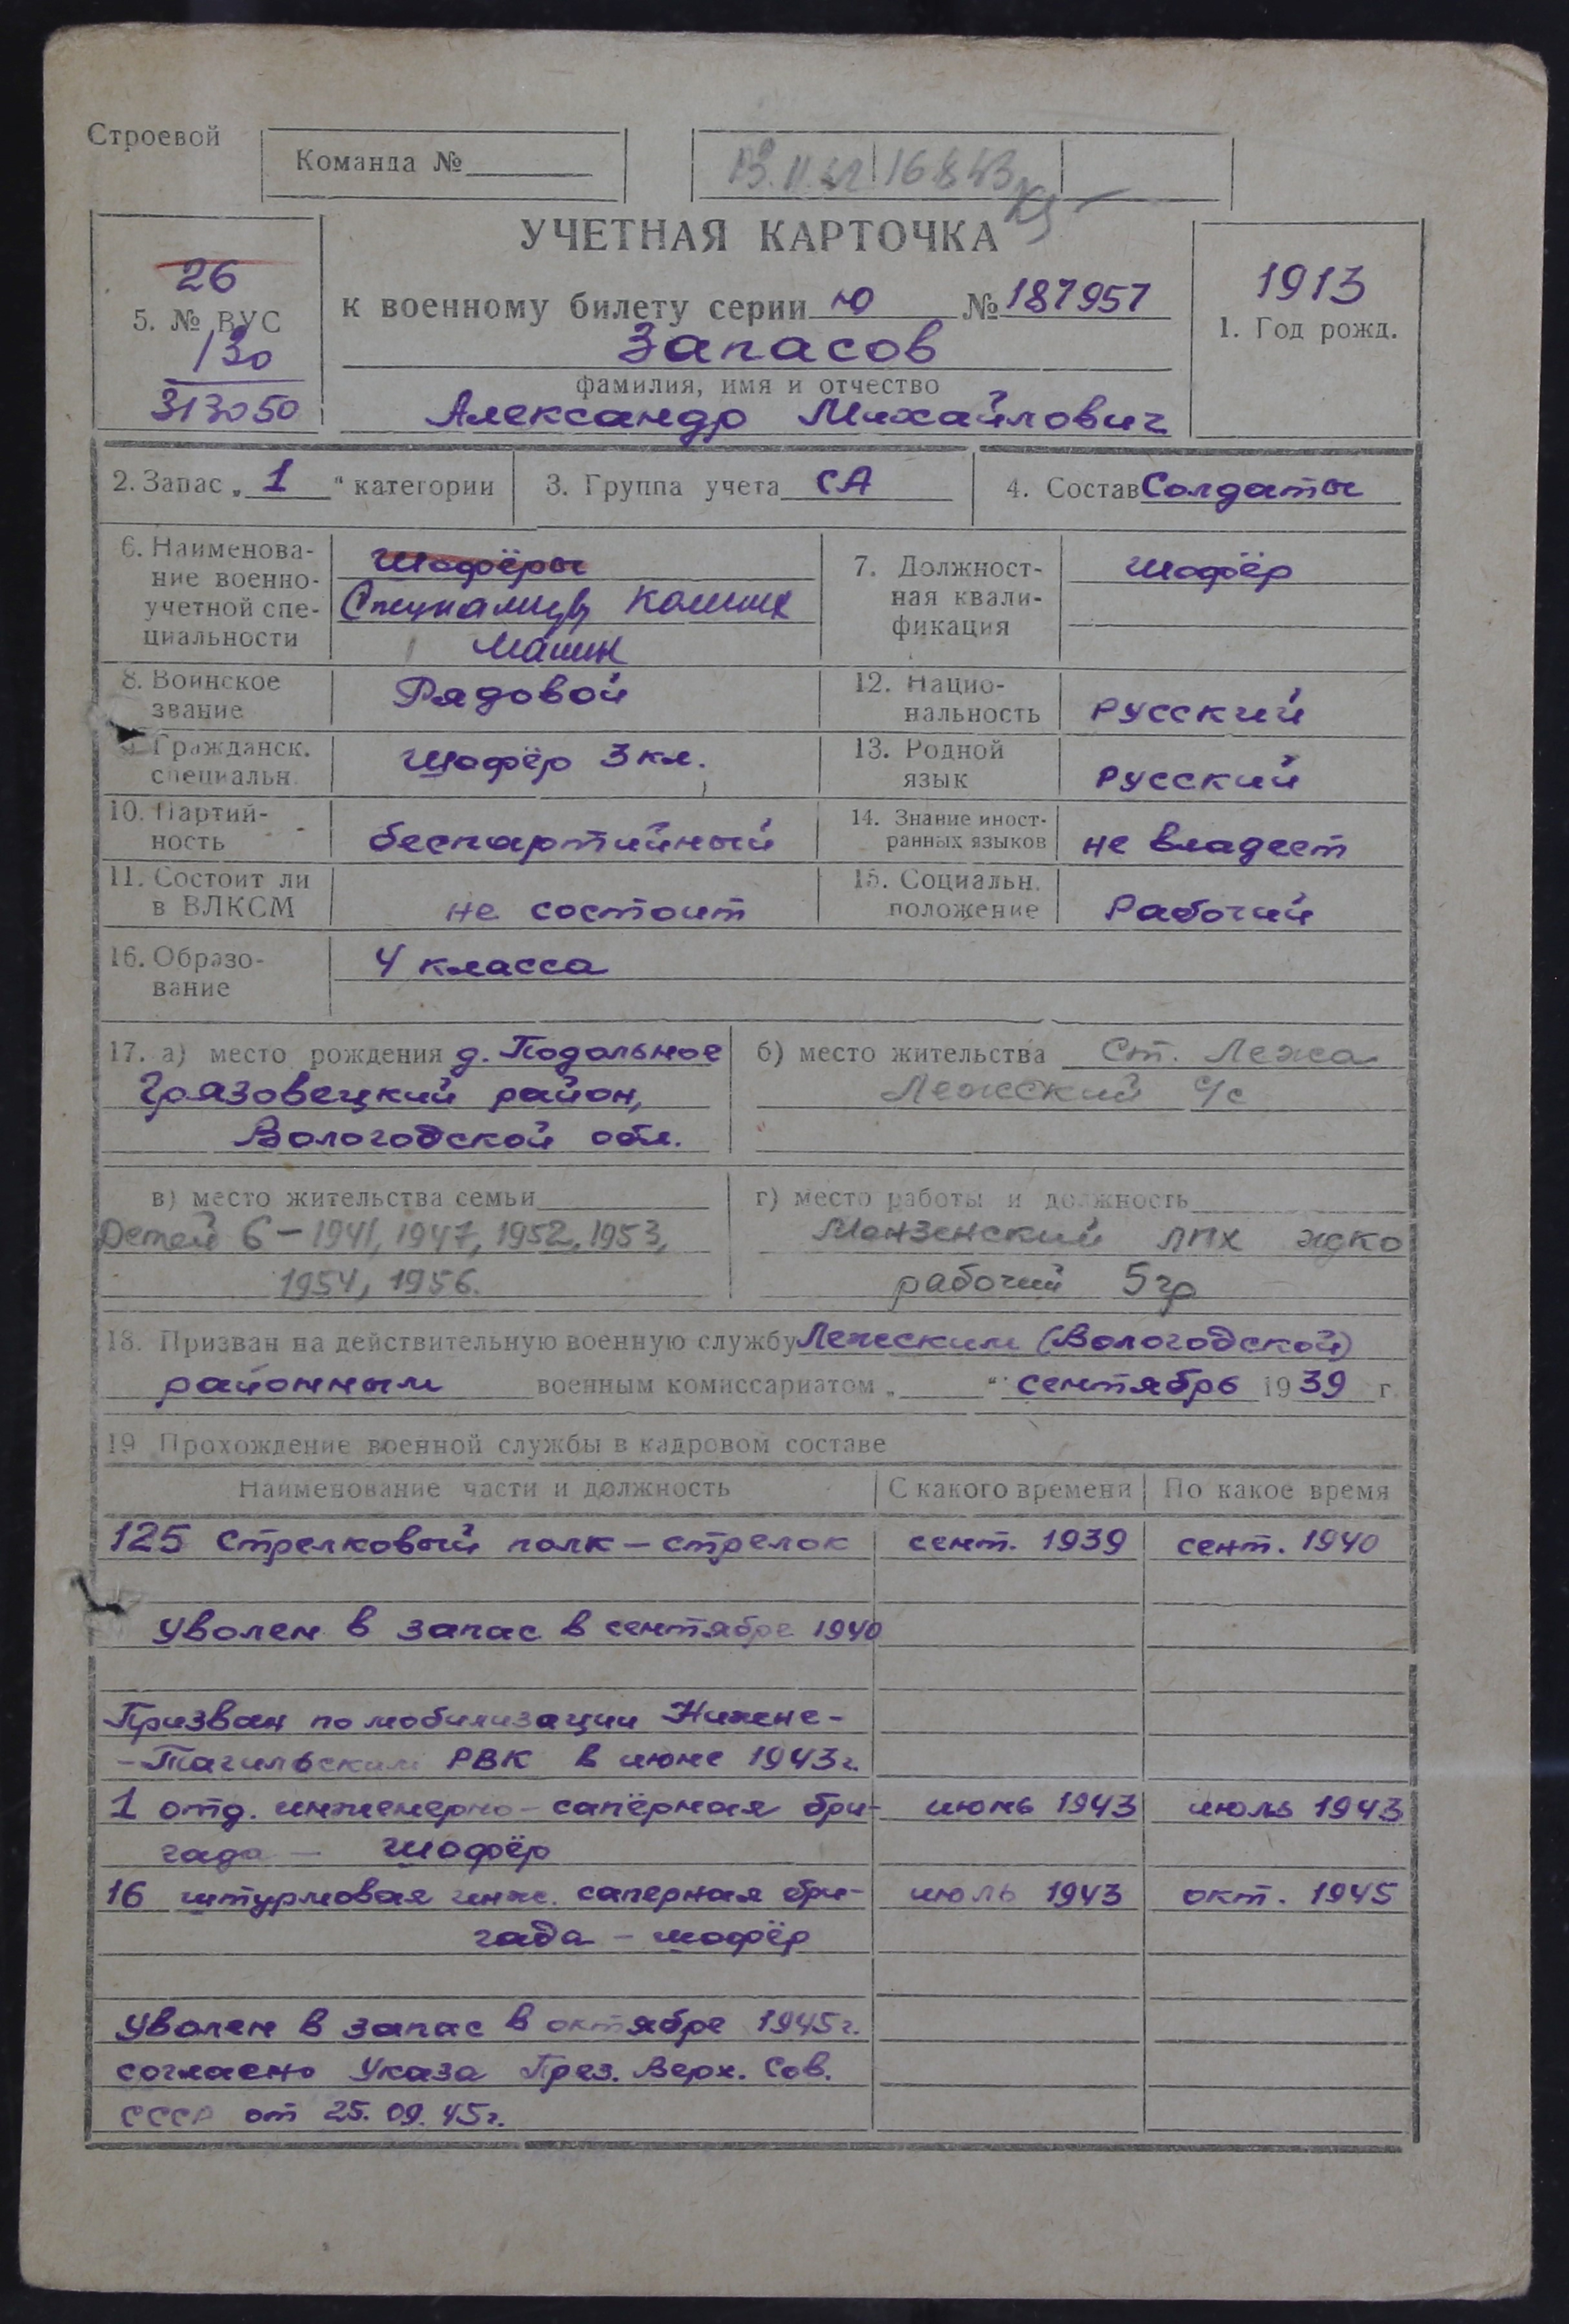 Строевой
Команда №
16843
УЧЕТНАЯ КАРТОЧКА
26
5. № ВУС
130
313050
к военному билету серии ю № 187957
Запасов
фамилия, имя и отчество
Александр Михайлович
1913
1. Год рожд.
2. Запас „ 1 “ категории
3. Группа учета СА
4. Состав Солдаты
6. Наименова-
ние военно-
учетной спе-
циальности
Шофёры
машин
7. Должност-
ная квали-
фикация
Шофёр
8. Воинское
звание
Рядовой
12. Нацио-
нальность
русский
9. Гражданск.
специальн.
Шофёр 3 кл.
13. Родной
язык
русский
10. Партий-
ность
беспартийный
14. Знание иност-
ранных языков
не владеет
11. Состоит ли
в ВЛКСМ
не состоит
15. Социальн.
положение
Рабочий
16. Образо-
вание
4 класса
17. а) место рождения д. Подольное
Грязовецкий район,
Вологодской обл.
б) место жительства Ст. Лежа
Лежский с/с
в) место жительства семьи
Детей 6 – 1941, 1947, 1952, 1953,
1954, 1956.
г) место работы и должность
Монзенский ЛПХ ждко
рабочий 5 гр
18. Призван на действительную военную службу Лежским (Вологодской)
районным военным комиссариатом „ “ сентябрь 1939 г.
19 Прохождение военной службы в кадровом составе
Наименование части и должность С какого времени По какое время
125 Стрелковый полк – стрелок сент. 1939 сент. 1940
Уволен в запас в сентябре 1940
Призван по мобилизации Нижне-
-Тагильским РВК в июне 1943г.
1 отд. инженерно-сапёрная бри- июнь 1943 июль 1943
гада – шофёр
16 штурмовая инж. саперная бри- июль 1943 окт. 1945
гада – шофёр
Уволен в запас в октябре 1945г.
согласно Указа През. Верх. Сов.
СССР от 25.09.45г.